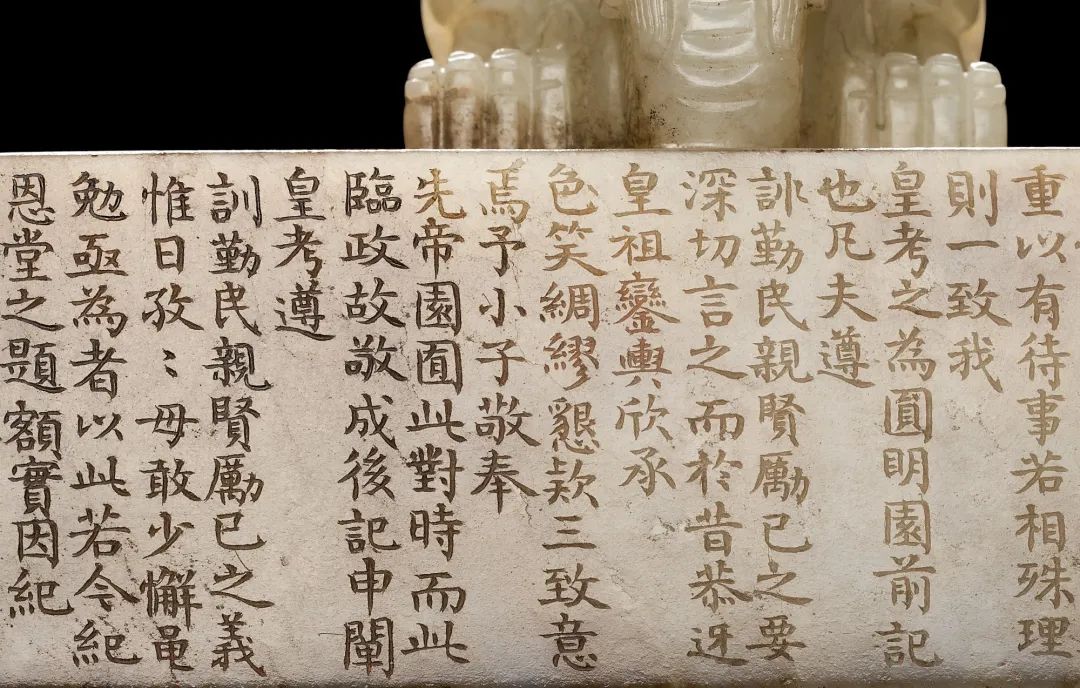 重以有待事若相殊理
則一致我
皇考之為圓明園前記
也凡夫遵
訓勤民親賢勵已之要
深切言之而於昔恭迓
皇祖鑾輿欣承
色笑綢繆懇欵三致意
焉予小子敬奉
先帝園囿此對時而此
臨政故敬成後記申闡
皇考遵
訓勤民親賢勵已之義
惟日孜〻毋敢少懈黽
勉亟為者以此若今紀
恩堂之題額實因紀